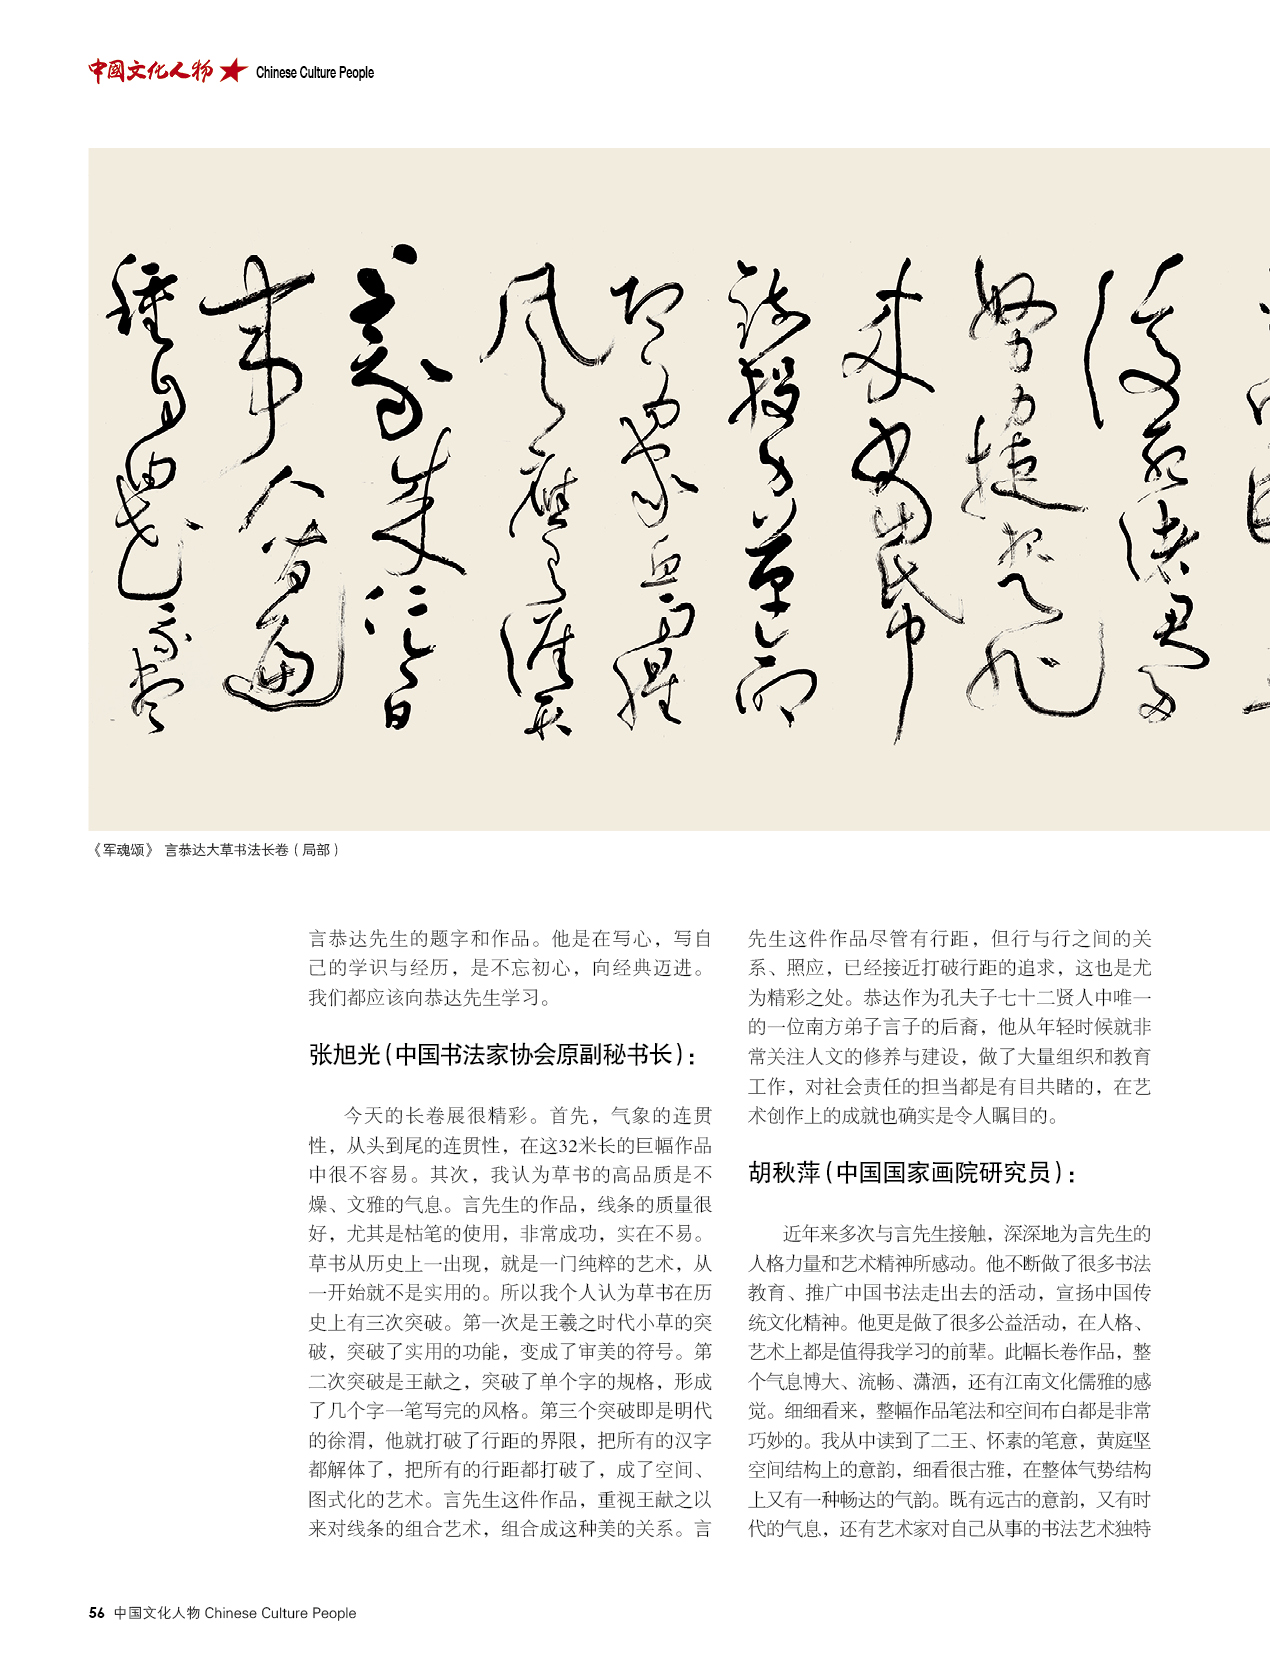 中國文化人物 Chinese Culture People
《军魂颂》 言恭达大草书法长卷（局部）
言恭达先生的题字和作品。他是在写心，写自
己的学识与经历，是不忘初心，向经典迈进。
我们都应该向恭达先生学习。
张旭光（中国书法家协会原副秘书长）：
今天的长卷展很精彩。首先，气象的连贯
性，从头到尾的连贯性，在这32米长的巨幅作品
中很不容易。其次，我认为草书的高品质是不
燥、文雅的气息。言先生的作品，线条的质量很
好，尤其是枯笔的使用，非常成功，实在不易。
草书从历史上一出现，就是一门纯粹的艺术，从
一开始就不是实用的。所以我个人认为草书在历
史上有三次突破。第一次是王羲之时代小草的突
破，突破了实用的功能，变成了审美的符号。第
二次突破是王献之，突破了单个字的规格，形成
了几个字一笔写完的风格。第三个突破即是明代
的徐渭，他就打破了行距的界限，把所有的汉字
都解体了，把所有的行距都打破了，成了空间、
图式化的艺术。言先生这件作品，重视王献之以
来对线条的组合艺术，组合成这种美的关系。言
先生这件作品尽管有行距，但行与行之间的关
系、照应，已经接近打破行距的追求，这也是尤
为精彩之处。恭达作为孔夫子七十二贤人中唯一
的一位南方弟子言子的后裔，他从年轻时候就非
常关注人文的修养与建设，做了大量组织和教育
工作，对社会责任的担当都是有目共睹的，在艺
术创作上的成就也确实是令人瞩目的。
胡秋萍（中国国家画院研究员）：
近年来多次与言先生接触，深深地为言先生的
人格力量和艺术精神所感动。他不断做了很多书法
教育、推广中国书法走出去的活动，宣扬中国传
统文化精神。他更是做了很多公益活动，在人格、
艺术上都是值得我学习的前辈。此幅长卷作品，整
个气息博大、流畅、潇洒，还有江南文化儒雅的感
觉。细细看来，整幅作品笔法和空间布白都是非常
巧妙的。我从中读到了二王、怀素的笔意，黄庭坚
空间结构上的意韵，细看很古雅，在整体气势结构
上又有一种畅达的气韵。既有远古的意韵，又有时
代的气息，还有艺术家对自己从事的书法艺术独特
56 中国文化人物 Chinese Culture People